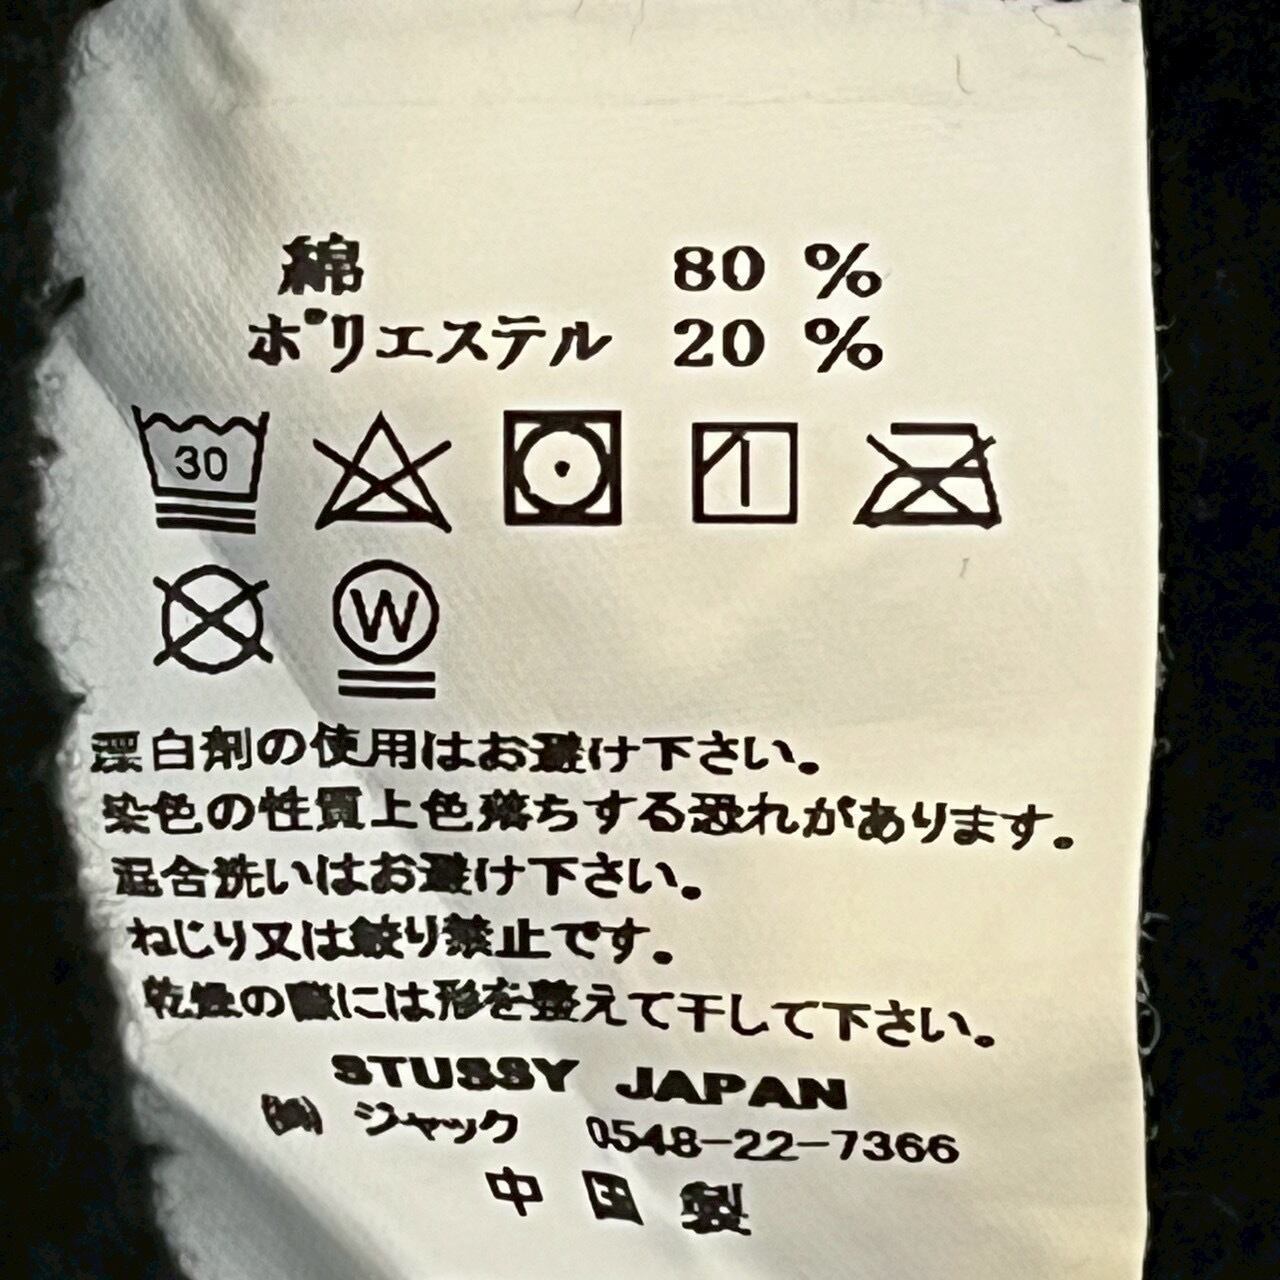 綿 80 %
ポリエステル 20 %
30
W
漂白剤の使用はお避け下さい。
染色の性質上色落ちする恐れがあります。
混合洗いはお避け下さい。
ねじり又は絞り禁止です。
乾燥の際には形を整えて干して下さい。
STUSSY JAPAN
㈱ ジャック 0548-22-7366
中国製